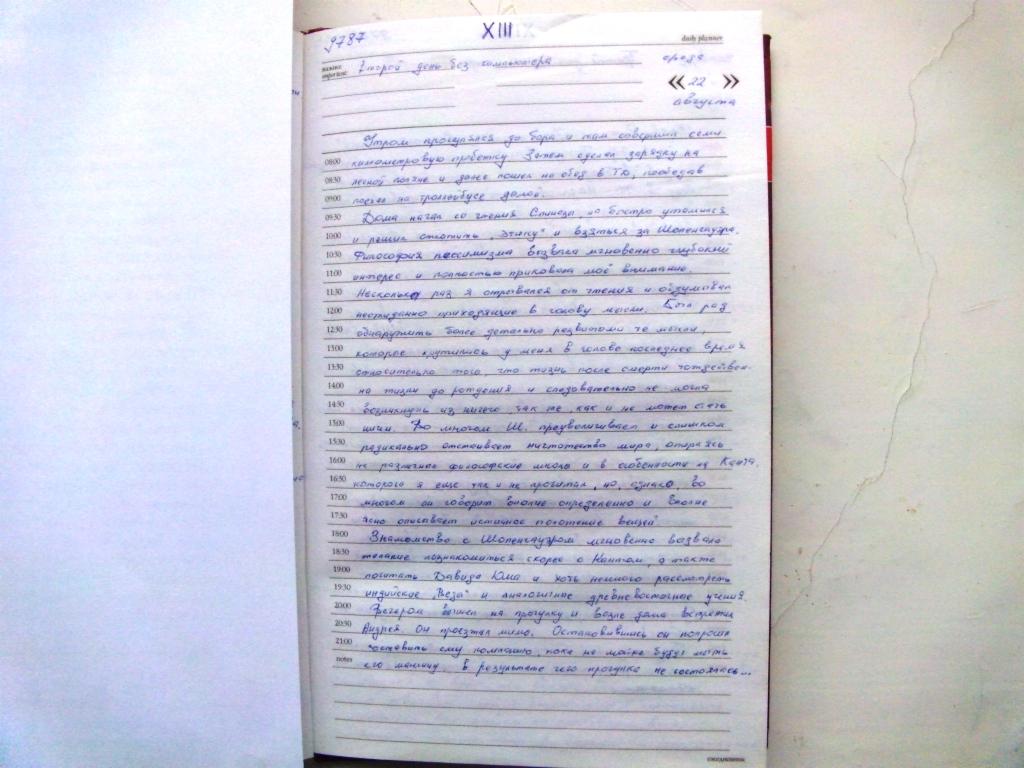 9787
XIII
daily planner
important
Второй день без компьютера
среда
22
августа
Утром прогулялся до бора и там совершил семи
08:00 километровую пробежку. Затем сделал зарядку на
08:30 лесной поляне и даже пошел на обед в ТЮ, пообедав
09:00 поехал на троллейбусе домой.
09:30 Дома начал со чтения Спинозы, но быстро утомился
10:00 и решил отложить „Этику" и взяться за Шопенгауэра.
10:30 Философия пессимизма вызвала мгновенно глубокий
11:00 интерес и полностью приковала моё внимание.
11:30 Несколько раз я отрывался от чтения и обдумывал
12:00 неожиданно приходящие в голову мысли. Был рад
12:30 обнаружить более детально развитыми те мысли,
13:00 которые крутились у меня в голове последнее время
13:30 относительно того, что жизнь после смерти тождествен-
14:00 на жизни до рождения и следовательно не могла
14:30 возникнуть из ничего так же, как и не может стать
15:00 ничем. Во многом Ш. преувеличивает и слишком
15:30 радикально отстаивает ничтожество мира, опираясь
16:00 на различные философские школы и в особенности на Канта,
16:30 которого я еще так и не прочитал, но, однако, во
17:00 многом он говорит вполне определенно и вполне
17:30 ясно описывает истинное положение вещей.
18:00 Знакомство с Шопенгауэром мгновенно вызвало
18:30 желание познакомиться скорее с Кантом, а также
19:00 почитать Давида Юма и хоть немного рассмотреть
19:30 индийские „Веды" и аналогичные древневосточные учения.
20:00 Вечером вышел на прогулку и возле дома встретил
20:30 Андрея. Он проезжал мимо. Остановившись он попросил
21:00 составить ему компанию, пока на мойке будут мыть
notes его машину, в результате чего прогулка не состоялась...
ЕЖЕДНЕВНИК